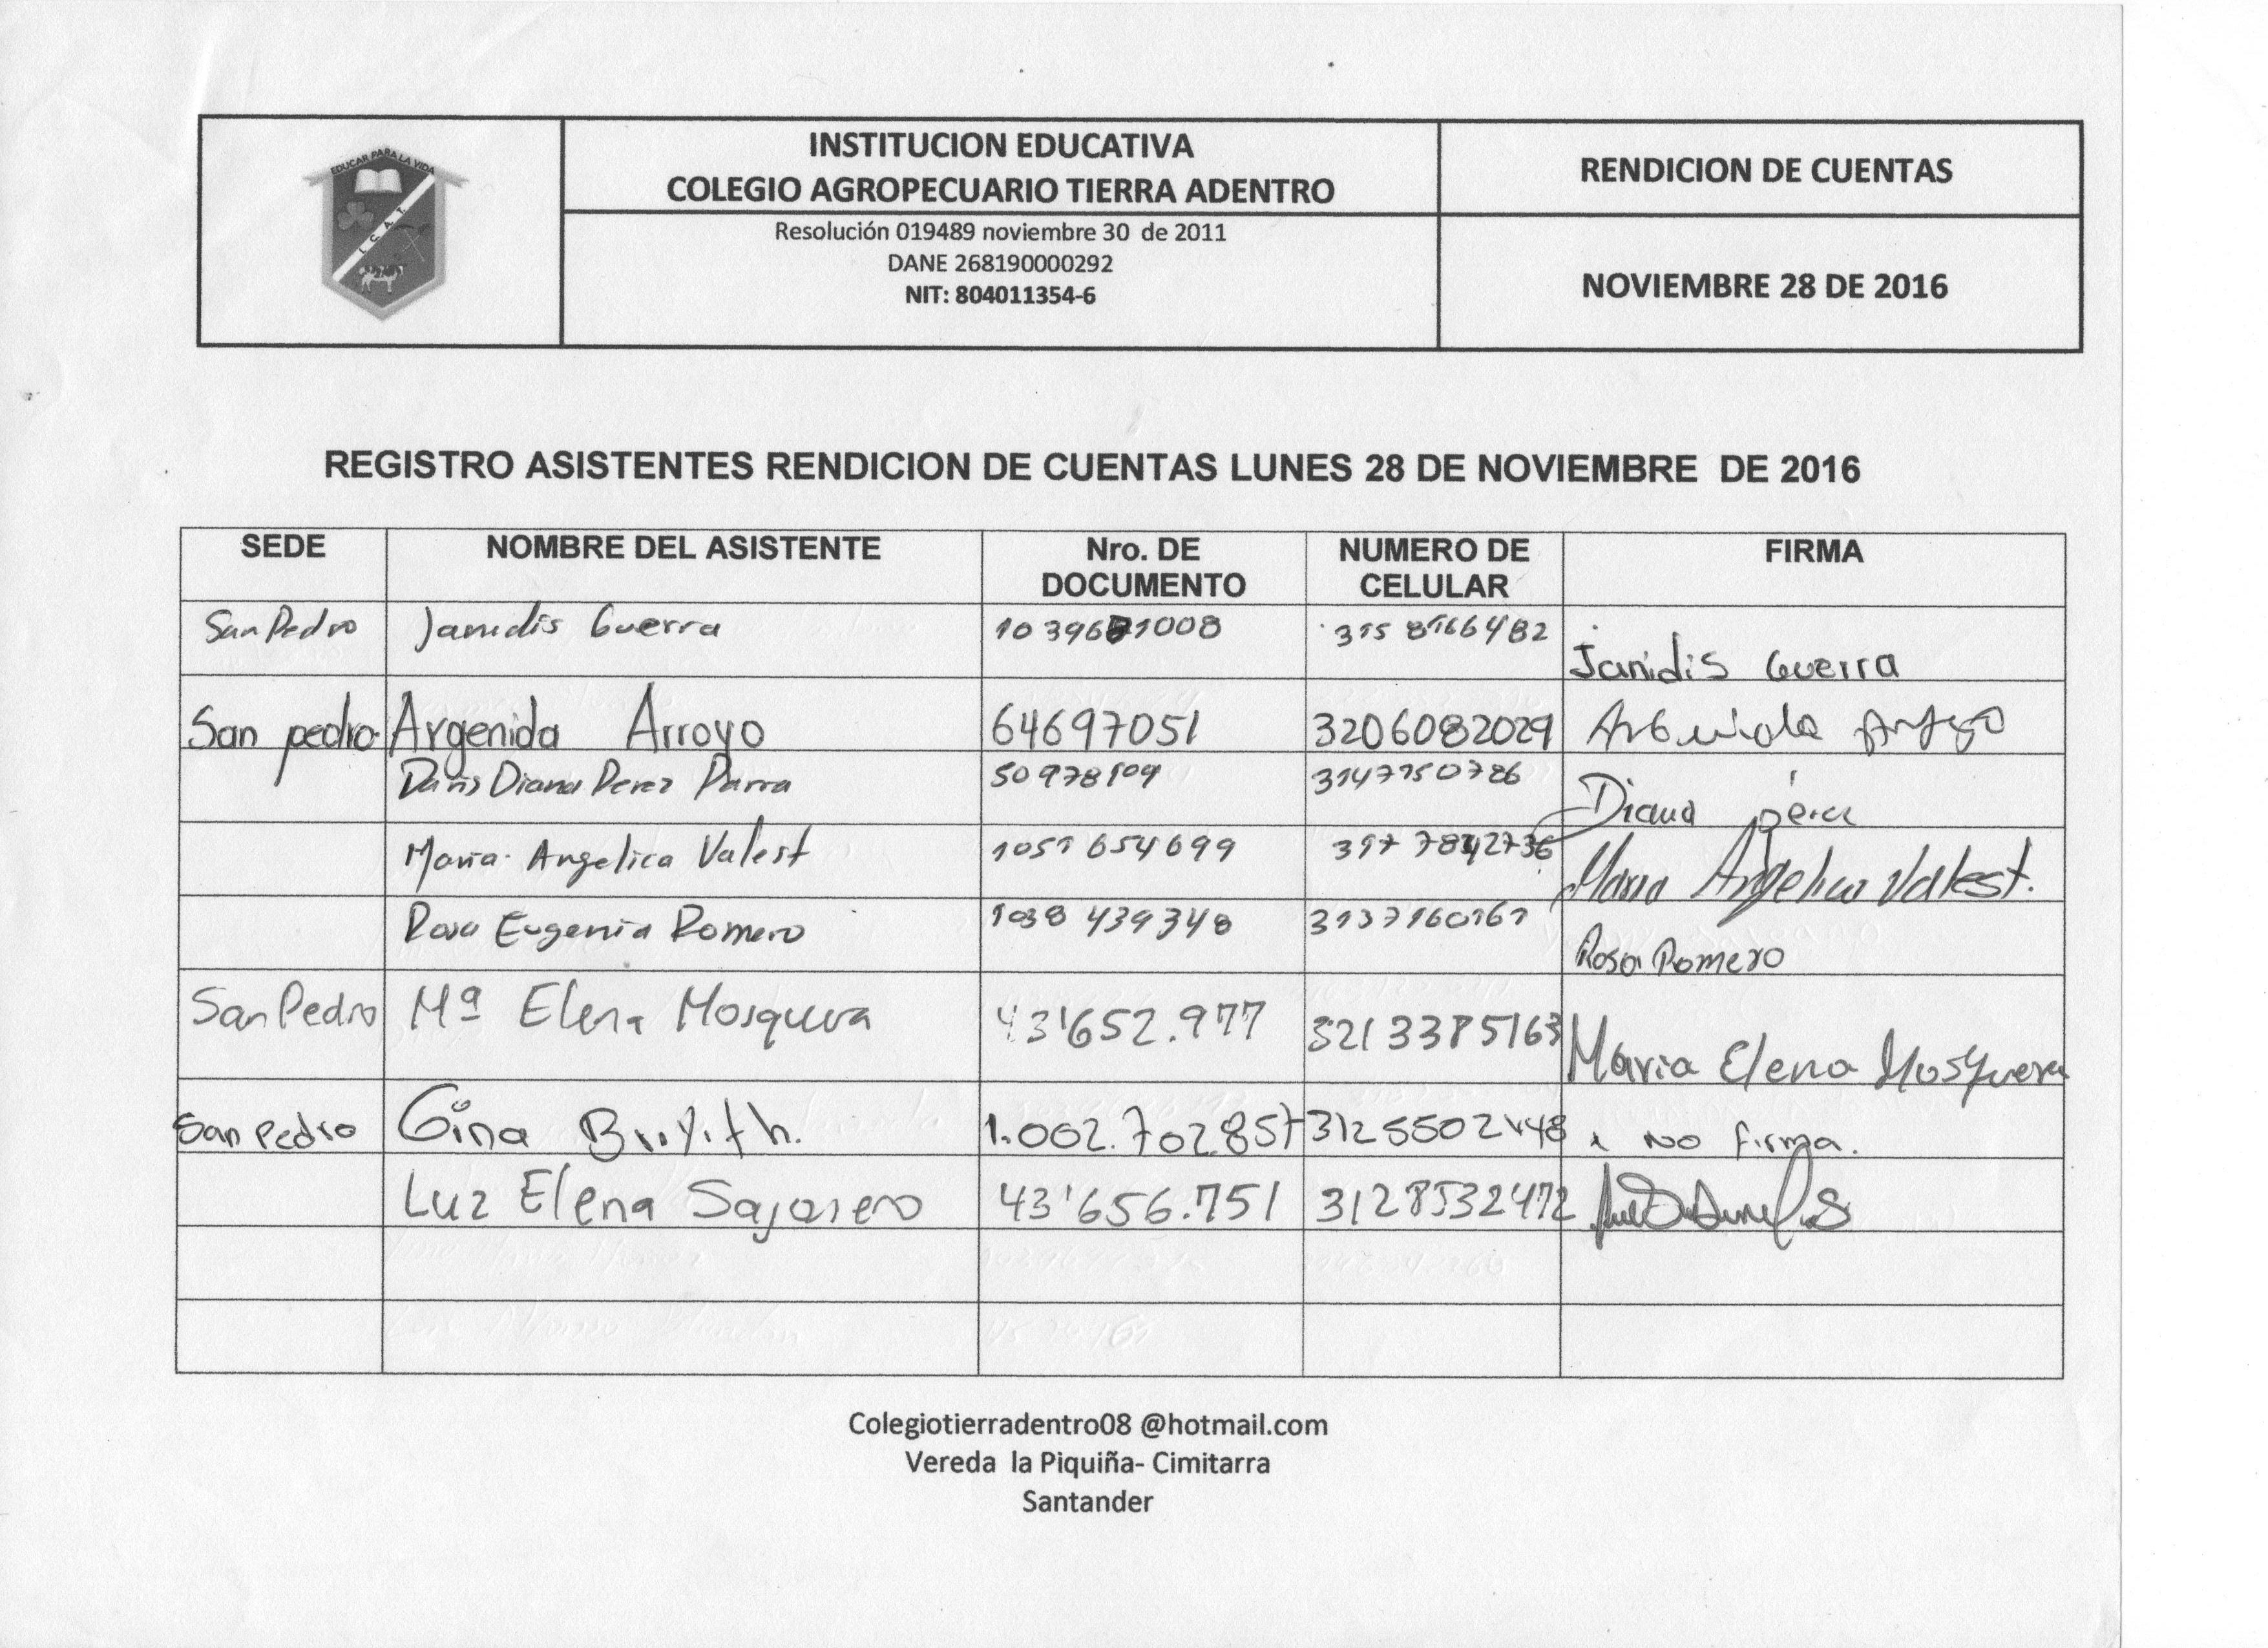 EDUCAR PARA LA VIDA
I. C. A. T.
INSTITUCION EDUCATIVA
COLEGIO AGROPECUARIO TIERRA ADENTRO
RENDICION DE CUENTAS
Resolución 019489 noviembre 30 de 2011
DANE 268190000292
NIT: 804011354-6
NOVIEMBRE 28 DE 2016
REGISTRO ASISTENTES RENDICION DE CUENTAS LUNES 28 DE NOVIEMBRE DE 2016
SEDE NOMBRE DEL ASISTENTE Nro. DE DOCUMENTO NUMERO DE CELULAR FIRMA
San Pedro Janidis Guerra Janidis Guerra
San pedro Argenida Arroyo 64697051 3206082029
Diana Perez Parra 50978109 3147150786 Diana
Maria Angelica Valest 1051654699 Maria Angelica Valest.
Rosa Eugenia Romero 1038 439348 3137160161 Rosa Romero
San Pedro Mª Elena Mosquera 43'652.977 3213385163 Maria Elena Mosquera
San Pedro Gina No firma.
Luz Elena 43'656.751 3128532472
Colegiotierradentro08 @hotmail.com
Vereda la Piquiña- Cimitarra
Santander